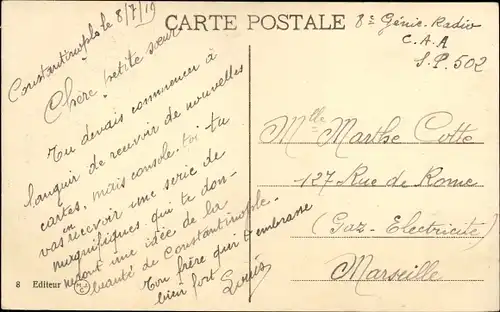 CARTE POSTALE
Constantinople 8/7/19
Chère petite sœur
Tu devais commencer à
languir de recevoir de nouvelles
cartes, mais console-toi tu
vas en recevoir une serie de
magnifiques qui te don-
neront une idée de la
beauté de Constantinople.
Ton frère qui t'embrasse
bien fort
Louis
8 Editeur
8e Génie. Radio
C.A.A
S.P. 502
Mlle Marthe Cotte
127 Rue de Rome
(Gaz-Electricité)
Marseille